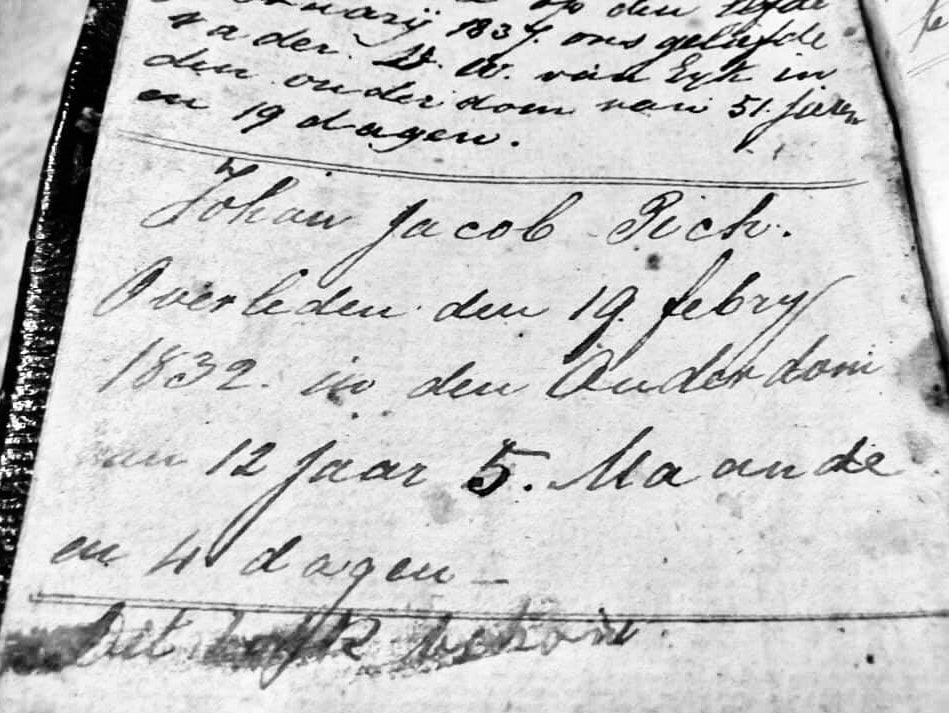 op den
1837. ons geliefde
vader D. W. van Eyk in
den ouderdom van 51. Jaren
en 19 dagen.
Johan Jacob Pich.
Overleden den 19. febry
1832. in den Ouderdom
van 12 Jaar 5. Maande
en 4 dagen –
Dit